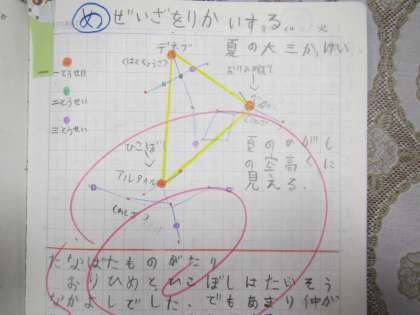 め ぜいざをりかいする。 火
デネブ
夏の大三かくけい
(はくちょうざ)
おりひめぼし
一とうせい
二とうせい
三とうせい
夏のひがし
の空高くに
見える。
ひこぼし
アルタイル
(わしざ)
たなばたものがたり
おりひめと、ひこぼしはたいそう
なかよしでした。でもあまり仲が